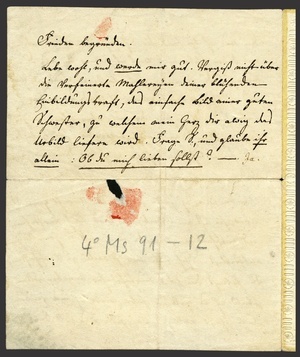 Frieden begründen.
Lebe wohl, und werde mir gut. Vergiß nicht über
die Verfeinerte Mahlereyen deiner blühenden
Einbildungskraft, das einfache Bild einer guten
Schwester, zu welchem mein Herz dir ewig das
Urbild liefern wird. Frage S, und glaube ihr
allein. Ob du mich lieben sollst? — Ja.
4° Ms 91 – 12